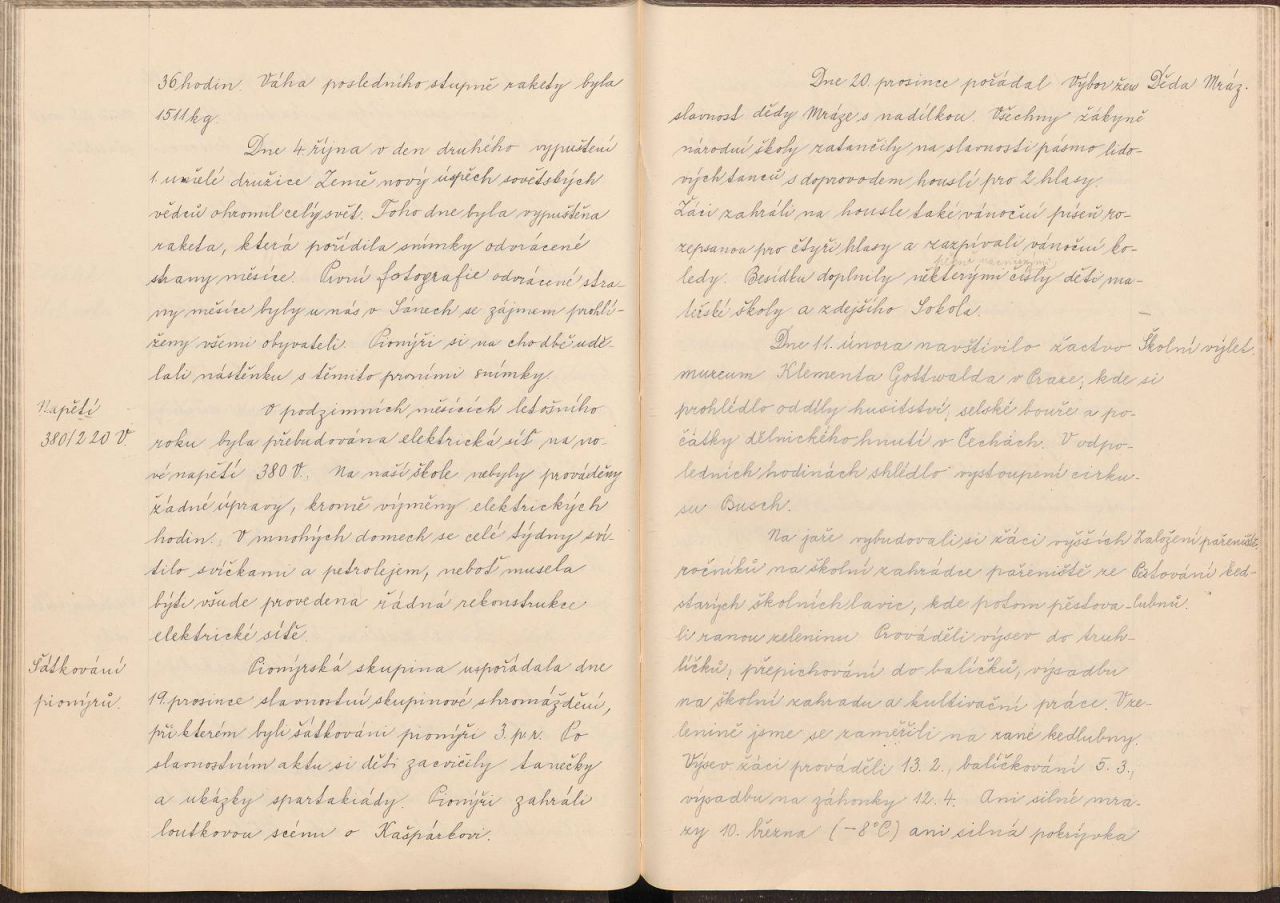 36 hodin. Váha posledního stupně rakety byla
1511 kg.
Dne 4. října v den druhého vypuštění
1. umělé družice Země nový úspěch sovětských
vědců ohromil celý svět. Toho dne byla vypuštěna
raketa, která pořídila snímky odvrácené
strany měsíce. První fotografie odvrácené stra-
ny měsíce byly u nás v Sánech se zájmem prohlí-
ženy všemi obyvateli. Pionýři si na chodbě udě-
lali nástěnku s těmito prvními snímky.
Napětí
380/220 V
V podzimních měsících letošního
roku byla přebudována elektrická síť na no-
vé napětí 380 V. Na naší škole nebyly prováděny
žádné úpravy, kromě výměny elektrických
hodin. V mnohých domech se celé týdny sví-
tilo svíčkami a petrolejem, neboť musela
býti všude provedena řádná rekonstrukce
elektrické sítě.
Šátkování
pionýrů.
Pionýrská skupina uspořádala dne
19. prosince slavnostní skupinové shromáždění,
při kterém byli šátkováni pionýři 3. p. r. Po
slavnostním aktu si děti zacvičily tanečky
a ukázky spartakiády. Pionýři zahráli
loutkovou scénu o Kašpárkovi.
Dne 20. prosince pořádal Výbor žen Děda Mráz.
slavnost dědy Mráze s nadílkou. Všechny žákyně
národní školy zatančily na slavnosti pásmo lido-
vých tanců s doprovodem houslí pro 2 hlasy.
Žáci zahráli na housle také vánoční píseň ro-
zepsanou pro čtyři hlasy a zazpívali vánoční ko-
ledy. Besídku doplnily některými čísly děti ma-
teřské školy a zdejšího Sokola.
Dne 11. února navštívilo žactvo Školní výlet.
muzeum Klementa Gottwalda v Praze, kde si
prohlédlo oddíly husitství, selské bouře a po-
čátky dělnického hnutí v Čechách. V odpo-
ledních hodinách shlédlo vystoupení cirku-
su Busch.
Na jaře vybudovali si žáci vyšších Založení pařeniště.
ročníků na školní zahrádce pařeniště ze Pěstování ked-
starých školních lavic, kde potom pěstova- lubnů.
li ranou zeleninu. Prováděli výsev do truh-
líčků, přepichování do balíčků, výsadbu
na školní zahradu a kultivační práce. V ze-
lenině jsme se zaměřili na rané kedlubny.
Výsev žáci prováděli 13. 2., balíčkování 5. 3.,
výsadbu na záhonky 12. 4. Ani silné mra-
zy 10. března (-8°C) ani silná pokrývka